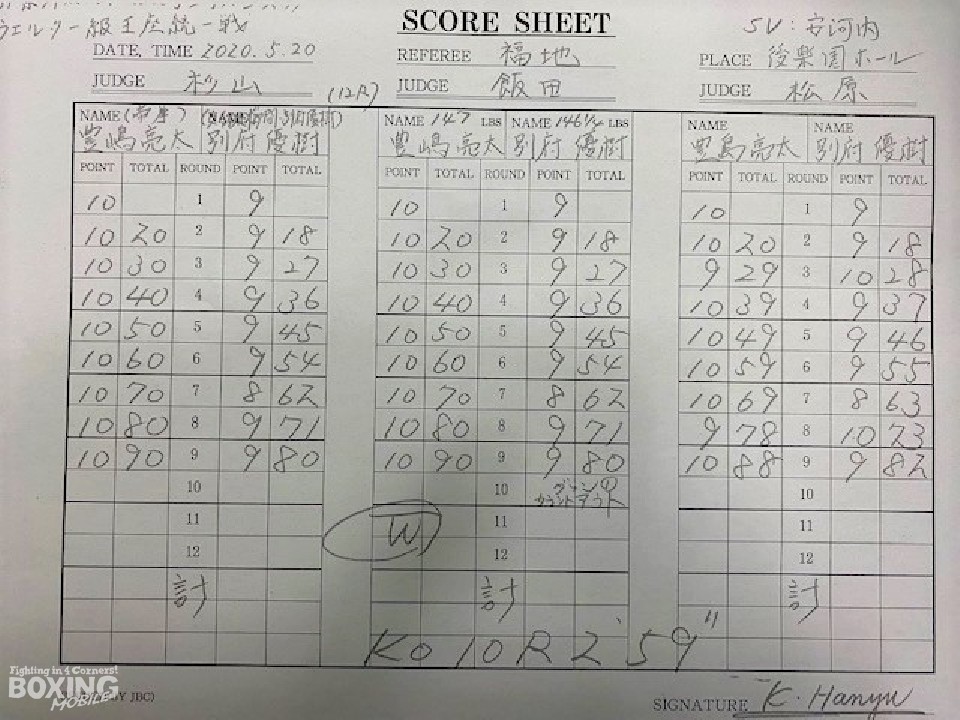 SCORE SHEET
ウェルター級王座統一戦 SV:安河内
DATE, TIME 2020.5.20 REFEREE 福地 PLACE 後楽園ホール
JUDGE 杉山 (12R) JUDGE 飯田 JUDGE 松原
NAME NAME NAME 147 LBS NAME 146 1/4 LBS NAME NAME
豊嶋亮太 別府優樹 豊嶋亮太 別府優樹 豊島亮太 別府優樹
POINT TOTAL ROUND POINT TOTAL POINT TOTAL ROUND POINT TOTAL POINT TOTAL ROUND POINT TOTAL
10 1 9 10 1 9 10 1 9
10 20 2 9 18 10 20 2 9 18 10 20 2 9 18
10 30 3 9 27 10 30 3 9 27 9 29 3 10 28
10 40 4 9 36 10 40 4 9 36 10 39 4 9 37
10 50 5 9 45 10 50 5 9 45 10 49 5 9 46
10 60 6 9 54 10 60 6 9 54 10 59 6 9 55
10 70 7 8 62 10 70 7 8 62 10 69 7 8 63
10 80 8 9 71 10 80 8 9 71 9 78 8 10 73
10 90 9 9 80 10 90 9 9 80 10 88 9 9 82
10 10 カウントアウト 10
11 W 11 11
12 12 12
計 計 計
KO 10R 2'59"
Fighting in 4 Corners!
BOXING
MOBILE
BY JBC)
SIGNATURE K. Hanyu